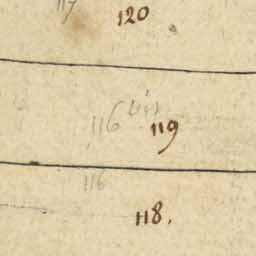 117
120
116 bis
119
116
118.